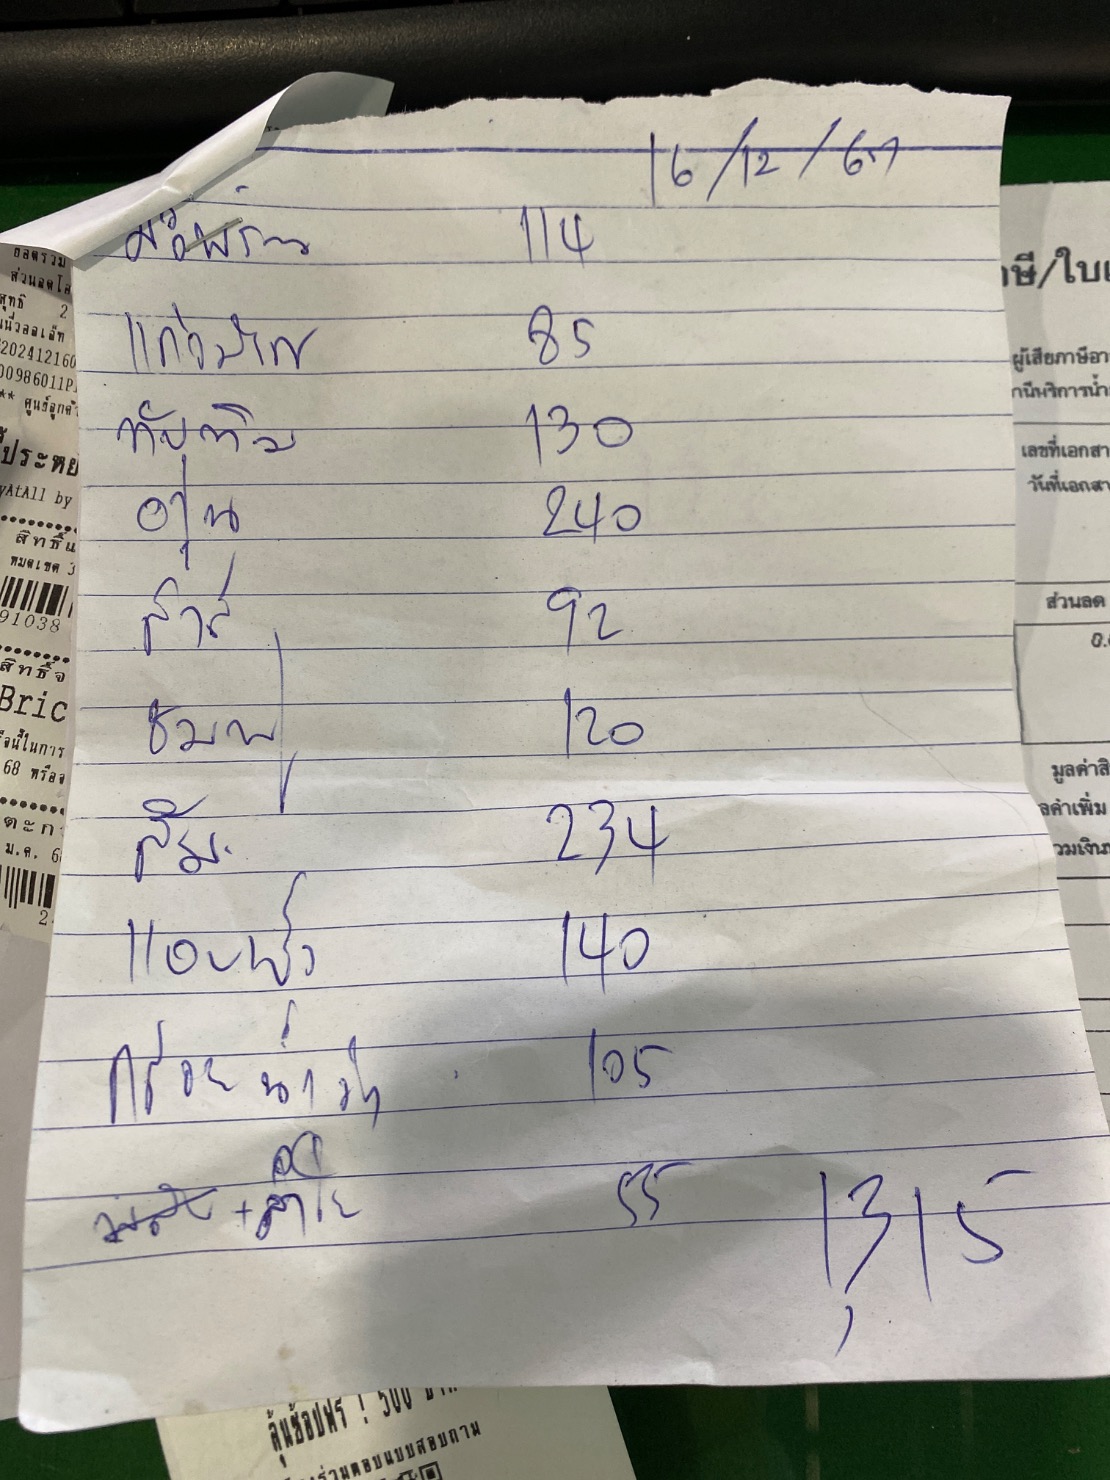 16/12/67
114
แก้วมังกร 85
ทับทิม 130
องุ่น 240
สาลี่ 92
ชมพู่ 120
ส้ม 234
แอปเปิ้ล 140
กล้วยน้ำว้า 105
+ลำไย 55
1,315
ยอดรวม
สุทธิ 2
** ศูนย์ลูกค้า
ประหย
yAtAll by
สิทธิ์แ
หมดเขต 3
91038
สิทธิ์จ
Bric
68 หรือจ
ตะก
ม.ค. 6
2
ษี/ใบเ
ผู้เสียภาษีอา
เลขที่เอกสา
วันที่เอกสา
ส่วนลด
0.
มูลค่าสิ
ลค่าเพิ่ม
วมเงิน
ลุ้นช้อปฟรี ! 500
ร่วมตอบแบบสอบถาม